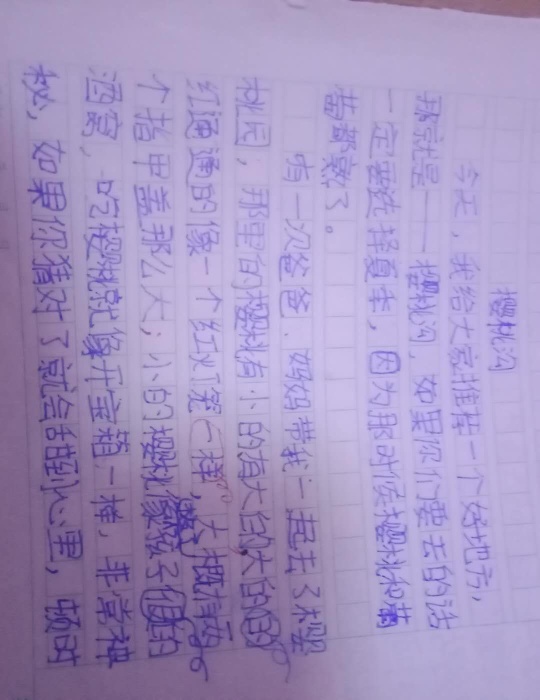 樱桃沟
今天，我给大家推荐一个好地方，
那就是——樱桃沟，如果你们要去的话
一定要选择夏季，因为那时候樱桃和
都熟了。
有一次爸爸、妈妈带我一起去了樱
桃园，那里的樱桃有小的有大的，大的
红通通的像一个红灯笼一样，大概有两
个指甲盖那么大；小的樱桃像孩子们的
酒窝，吃樱桃就像开宝箱一样，非常神
秘，如果你猜对了就会甜到心里，顿时